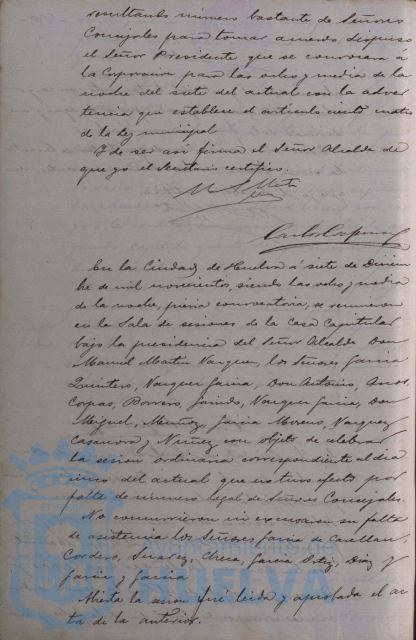 resultando número bastante de Señores
Concejales para tomar acuerdo, dispuso
el Señor Presidente que se convocará á
la Corporacion para las ocho y media de la
noche del siete del actual con la adver
tencia que establece el articulo ciento cuatro
de la Ley municipal
Y de ser asi firma el Señor Alcalde de
que yo el Secretario certifico.
En la Ciudad de Huelva á siete de Diciem
bre de mil novecientos, siendo las ocho y media
de la noche, prévia convocatoria, se reunieron
en la Sala de sesiones de la Casa Capitular
bajo la presidencia del Señor Alcalde Don
Manuel Matin Vazquez, los Señores Garcia
Quintero, Vazquez Garcia, Don Antonio,
Corpas, Borrero, Garrido, Vazquez Garcia, Don
Miguel, Muñoz, Garcia Moreno, Vazquez
Casanova y Nuñez con objeto de celebrar
la sesion ordinaria correspondiente al dia
cinco del actual que no tuvo efecto por
falta de número legal de Señores Concejales.
No concurrieron ni excusaron su falta
de asistencia los Señores Garcia de Casellan,
Cordero, Suarez, Checa, Garcia Ortiz, Diaz y
Garcia y Garcia
Abierta la sesion fué leida y aprobada el ac
ta de la anterior.
Ayuntamiento de
HUELVA